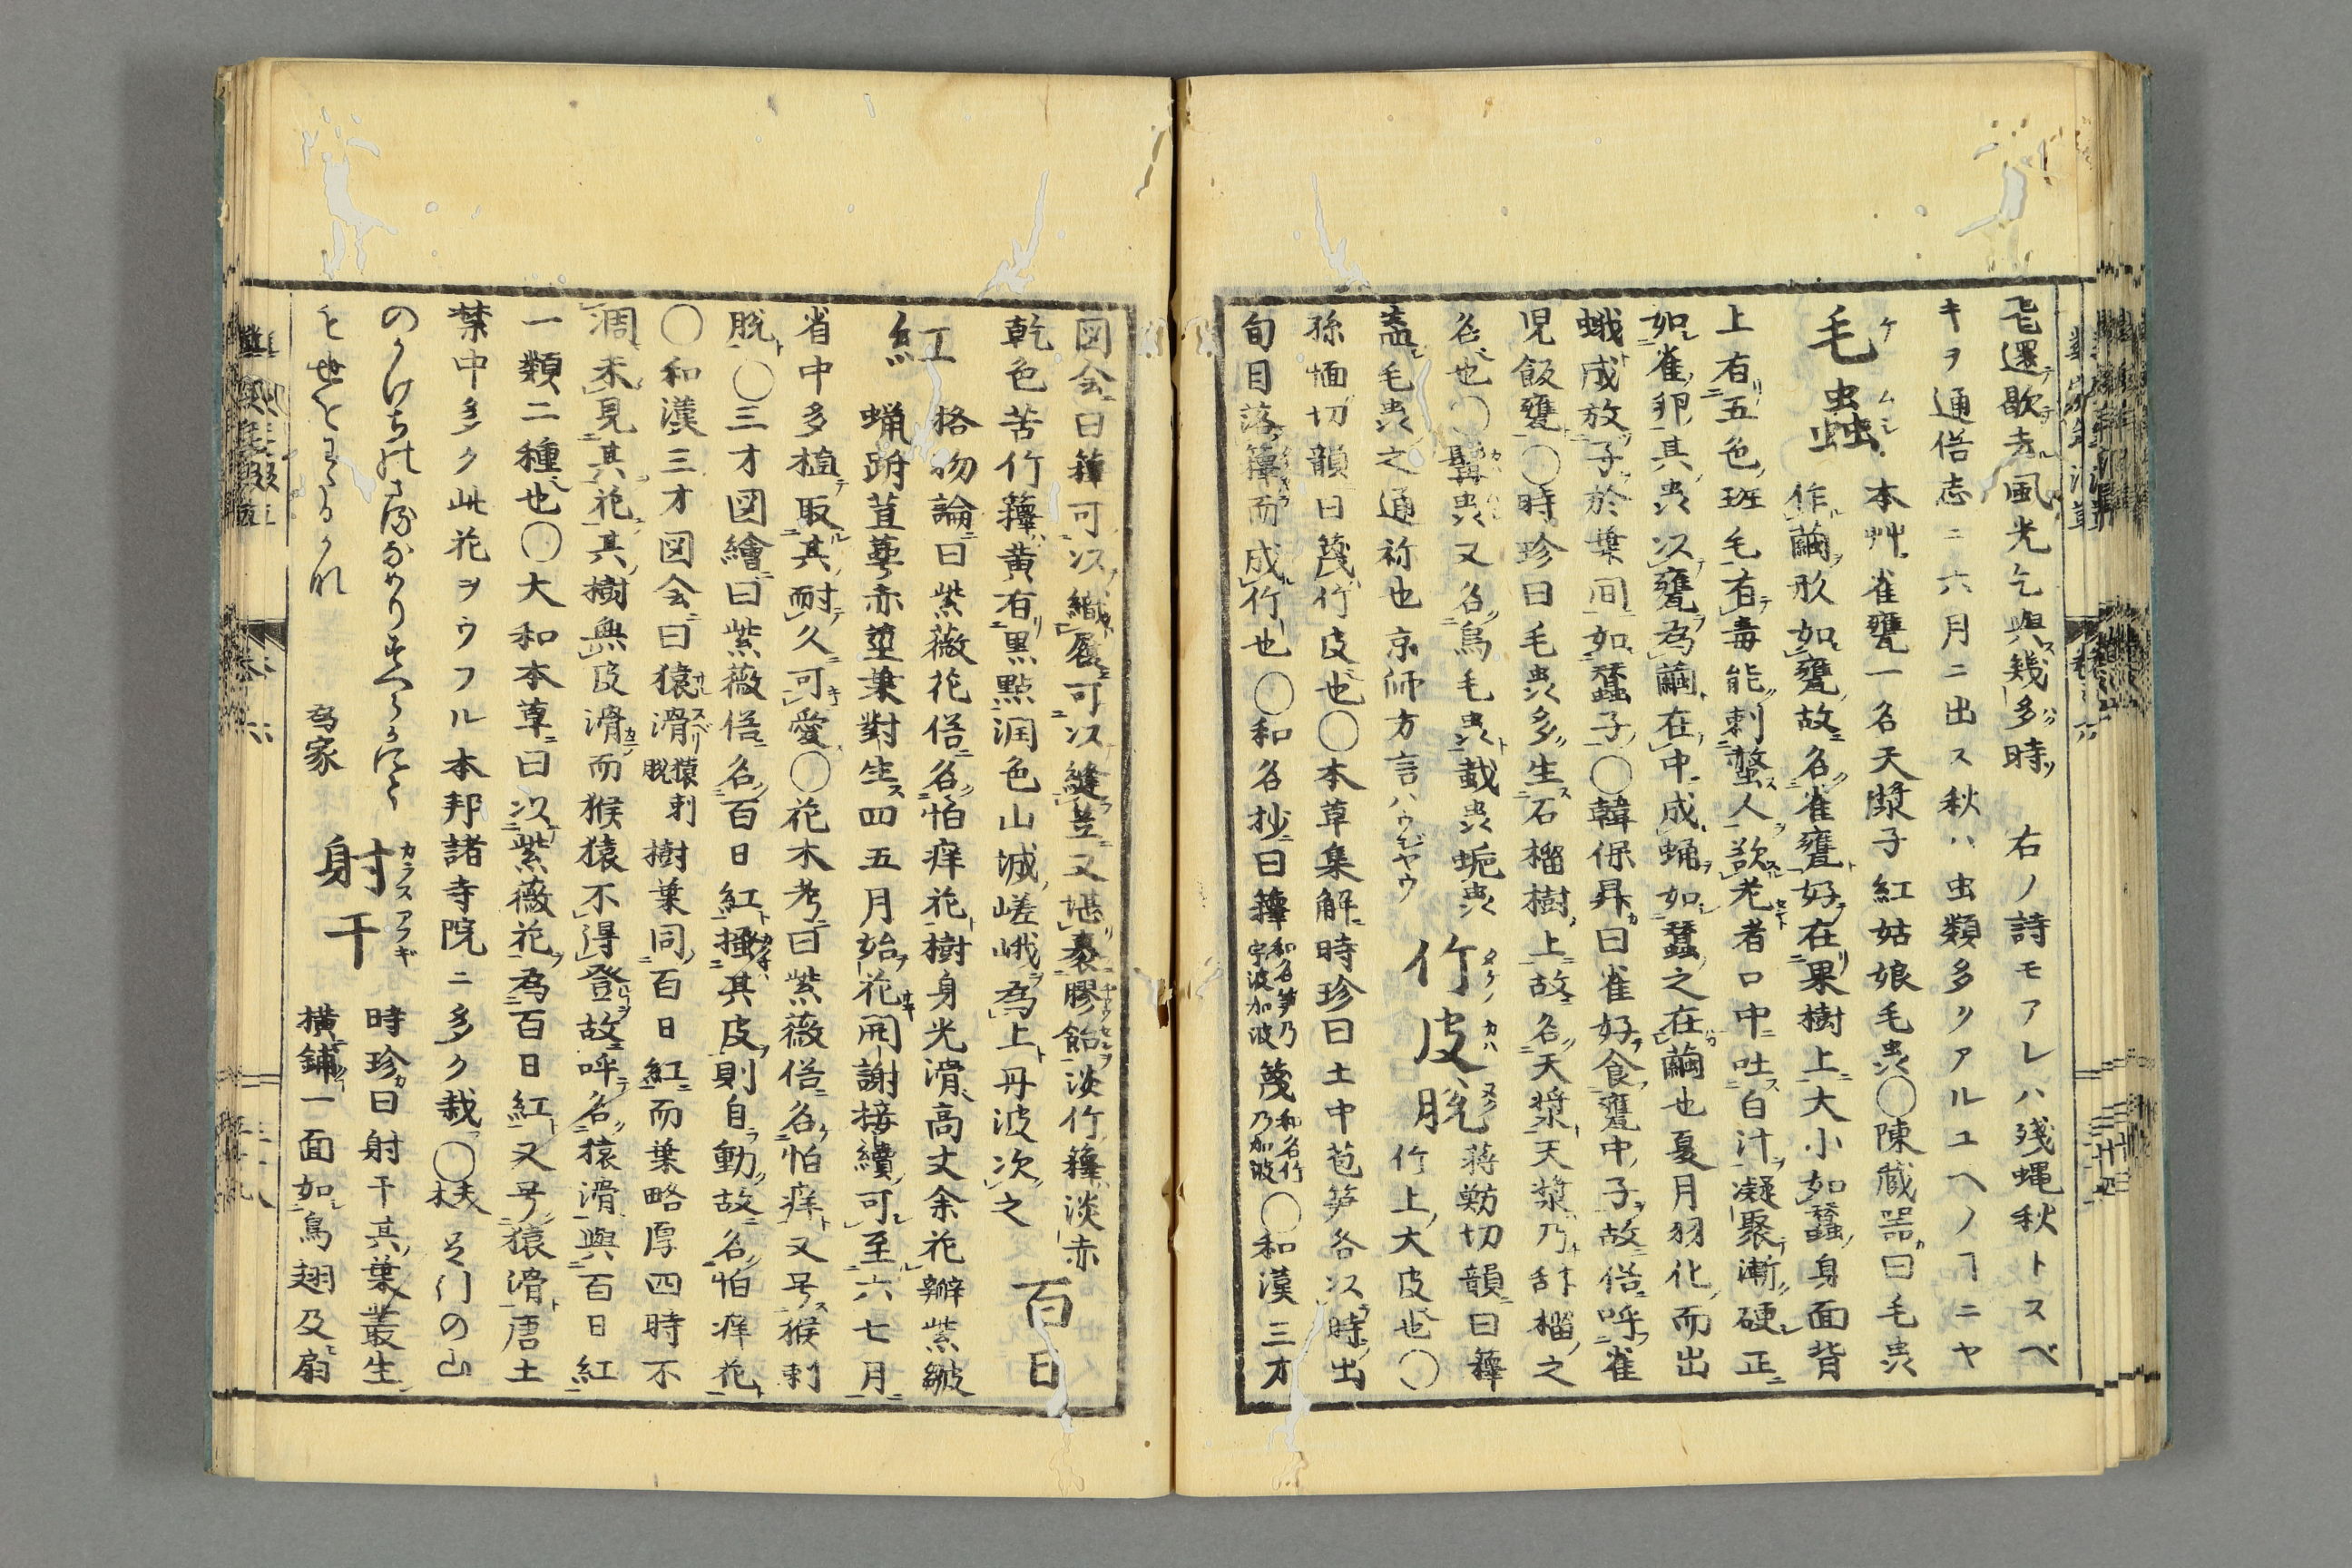 飛還歇去風光乞與幾多時 右ノ詩モアレハ殘蝿秋トスベ
キヲ通俗志ニ六月ニ出ス秋ハ虫類多クアルユヘノヿニヤ
毛蟲 本艸雀甕一名天漿子紅姑娘毛虫○陳蔵噐曰毛虫
作繭形如甕故名雀甕好在果樹上大小如蠶身面背
上有五色斑毛有毒能刺螫人欲老者口中吐白汁凝聚漸硬正
如雀卵其虫以甕為繭在中成蛹如蠶之在繭也夏月羽化而出
蛾成放子於葉間如蠶子○韓保昇曰雀好食甕中子故俗呼雀
児飯甕○時珍曰毛虫多生石榴樹上故名天漿天漿乃甜榴之
名也○髯虫又名烏毛虫載虫蚝虫 竹皮脱 蒋魴切韻曰籜
竹上大皮也○
蓋毛虫之通称也京師方言ハウジヤウ
孫愐切韻曰䈽竹皮也○本草集解時珍曰土中苞笋各以時出
旬日落籜而成竹也○和名抄曰籜和名笋乃宇波加波䈽和名竹乃加波○和漢三才
図会曰籜可以織履可以縫笠又堪裹膠飴淡竹籜淡赤
乾色苦竹籜黄有黒點润色山城嵯峨為上丹波次之
百日
紅 格物論曰紫薇花俗名怕痒花樹身光滑高丈余花瓣紫皺
蝋跗茸萼赤莖葉對生四五月始花開謝接續可至六七月
省中多植取其耐久可愛○花木考曰紫薇俗名怕痒又号猴刺
脱○三才図繪曰紫薇俗名百日紅搔其皮則自動故名怕痒花
○和漢三才図会曰猿滑猿刺脱樹葉同百日紅而葉略厚四時不
凋未見其花其樹無皮滑而猴猿不得登故呼名猿滑與百日紅
一類二種也○大和本草曰以紫薇花為百日紅又号猿滑唐土
禁中多ク此花ヲウフル本邦諸寺院ニ多ク栽○
為家
射干 時珍曰射干其葉叢生
横鋪一面如烏翅及扇